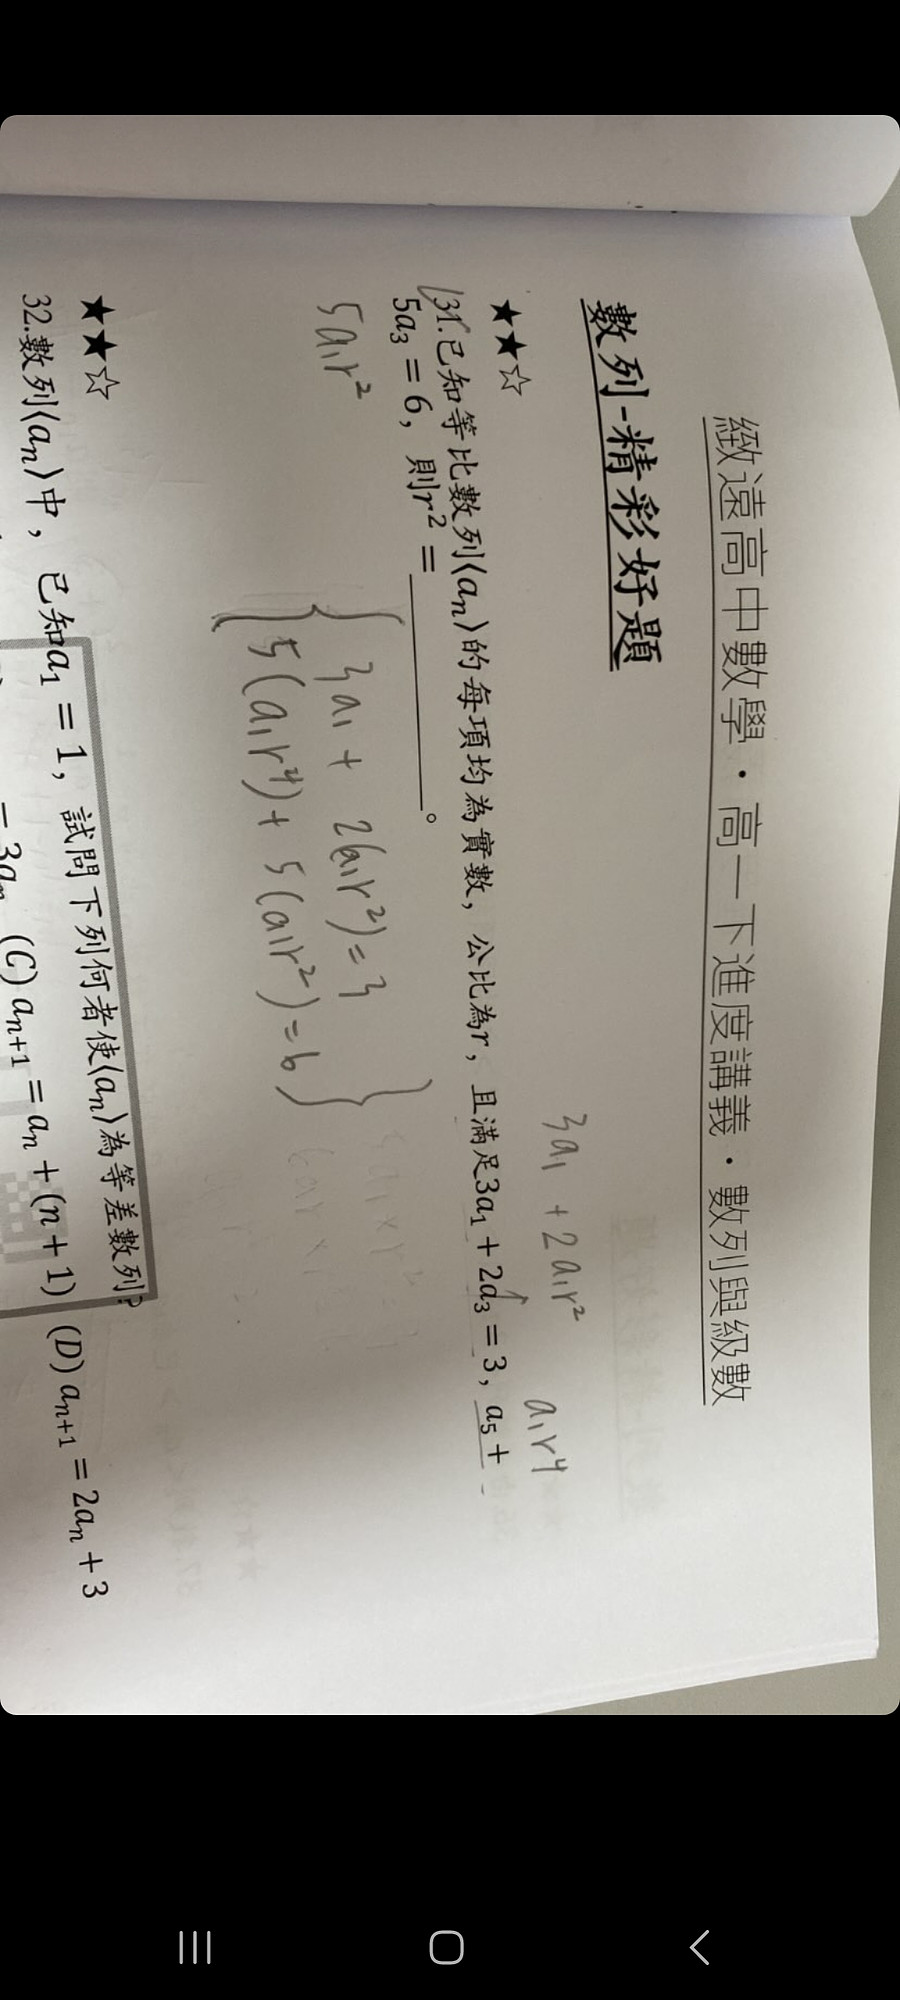 緻遠高中數學・高一下進度講義・數列與級數
數列-精彩好題
3a₁ + 2a₁r²
a₁r⁴
★★☆
31.已知等比數列⟨aₙ⟩的每項均為實數，公比為r，且滿足3a₁ + 2a₃ = 3，a₅ +
5a₃ = 6，則r² = ＿＿＿＿＿。
5a₁r²
3a₁ + 2(a₁r²) = 3
5(a₁r⁴) + 5(a₁r²) = 6
★★☆
32.數列⟨aₙ⟩中，已知a₁ = 1，試問下列何者使⟨aₙ⟩為等差數列？
= 3aₙ (C) aₙ₊₁ = aₙ + (n + 1) (D) aₙ₊₁ = 2aₙ + 3